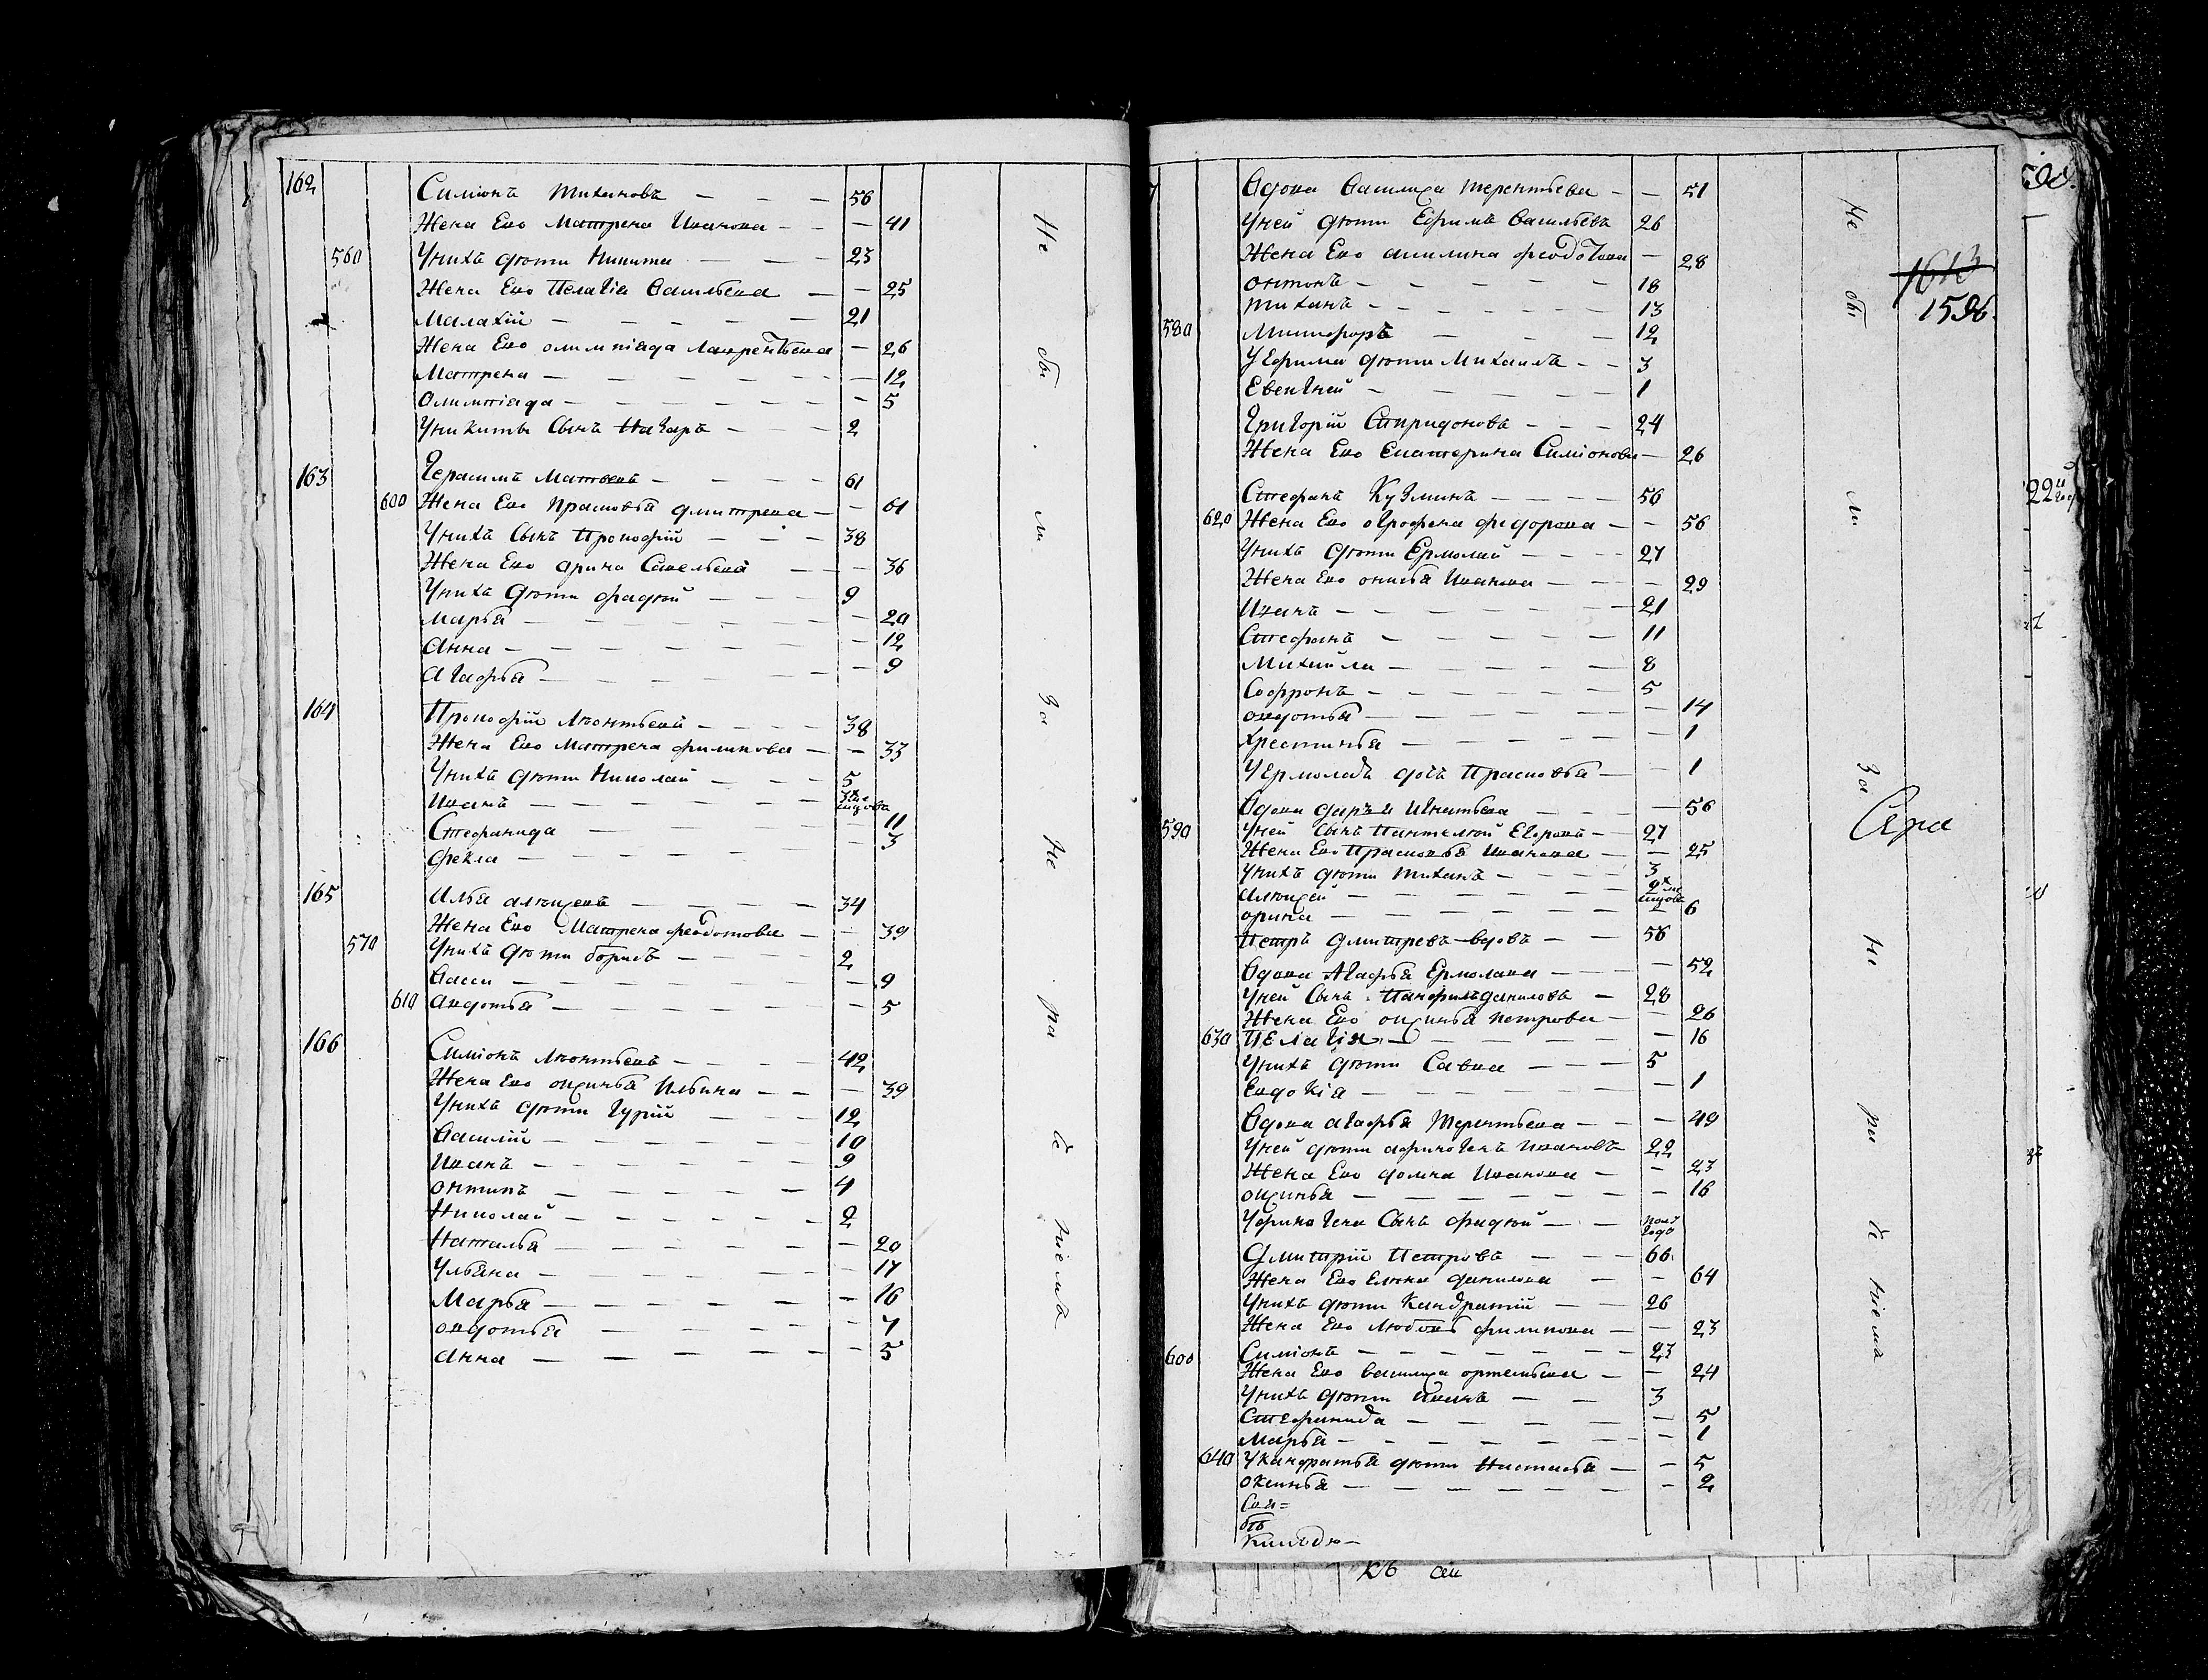 162 Симіонъ Тихановъ — — — 56
Жена Ево Матрена Иванова — — — 41
560 Унихъ дѣти Никита — — — 23
Жена Ево Пелагіа Васильева — — 25
Малахій — — — — — 21
Жена Ево олимпіада Лаврентьева — 26
Матрена — — — — — — 12
Олимпіада — — — — — — 5
Уникиты Сынъ Назаръ — — — 2
163 Герасимъ Матвевъ — — — — 61
600 Жена Ево Прасковья дмитрева — — 61
Унихъ Сынъ Прокофій — — — 38
Жена Ево арина Савельева — — — 36
Унихъ дѣти фадѣй — — — 9
Марья — — — — — — 20
Анна — — — — — — 12
Агафья — — — — — — 9
164 Прокофій Лѣонтьевъ — — — — 38
Жена Ево Матрена филипова — — 33
Унихъ дѣти Николай — — — 5
Иванъ — — — — — —
Стефанида — — — — 11
фекла — — — — — 3
165 Илья алѣксѣевъ — — — — 34
Жена Ево Матрена федотова — — 39
570 Унихъ дѣти борисъ — — — — 2
Васса — — — — — — 9
610 авдотья — — — — — — 5
166 Симіонъ Лѣонтьевъ — — — — 42
Жена Ево оксинья Ильина — — — 39
Унихъ дѣти Гурій — — — 12
Василій — — — — — 10
Иванъ — — — — — — 9
онтипъ — — — — — 4
Николай — — — — — — 2
Наталья — — — — — — 20
Ульяна — — — — — — 17
Марья — — — — — — 16
овдотья — — — — — 7
анна — — — — — — 5
Не бы ли за не ра бо тіемъ
Вдова Василиса терентьева — — 51
Уней дѣти Ефримъ Васильевъ 26
Жена Ево акилина феодотова — 28
онтонъ — — — — — 18
тиханъ — — — — — — 13
580 Никифоръ — — — 12
У Ефрима дѣти Михаилъ — — 3
Евенгней — — — — — 1
Григорій Спиридоновъ — — — 24
Жена Ево Екатерина Симіонова — 26
Стефанъ Кузминъ — — — — 56
620 Жена Ево огрофена федорова — — 56
Унихъ дѣти Ермолай — — — — 27
Жена Ево онисья Иванова — — — — 29
Иванъ — — — — — — — 21
Стефанъ — — — — — 11
Михайла — — — — — 8
Софронъ — — — — — 5
овдотья — — — — — — 14
Хрестинья — — — — — — 1
У Ермолая дочь Прасковья — — 1
Вдова дарья Игнатьева — — — 56
590 Уней Сынъ Пантелѣй Егоровъ — 27
Жена Ево Прасковья Иванова — — 25
Унихъ дѣти тиханъ — — — — 3
алѣксѣй — — — — —
орина — — — — — — 6
Петръ дмитревъ вдовъ — — 56
Вдова Агафья Ермолаева — — — 52
Уней Сынъ Панфилъ даниловъ — 28
Жена Ево оксинья петрова — — 26
630 Пелагія — — — — — 16
Унихъ дѣти Савва — — — 5
Евдокіа — — — — — — 1
Вдова агафья Терентьева — — — 49
Уней дѣти афиногенъ ивановъ 22
Жена Ево домна Иванова — — 23
оксинья — — — — — — — 16
Уфиногена Сынъ фадѣй — — пол года
дмитрій Петровъ — — — 66
Жена Ево Елена данилова — — 64
Унихъ дѣти Кандратій — — 26
Жена Ево Любовь филипова — — 23
600 Симіонъ — — — — — — — 23
Жена Ево василиса ортемьева — — 24
Унихъ дѣти Иванъ — — 3
Стефанида — — — — — 5
Марья — — — — — — — 1
640 Укандратья дѣти Настасья — — 5
оксинья — — — — — — — 2
Не бы ли за не ра бо тіемъ
1613
1596.